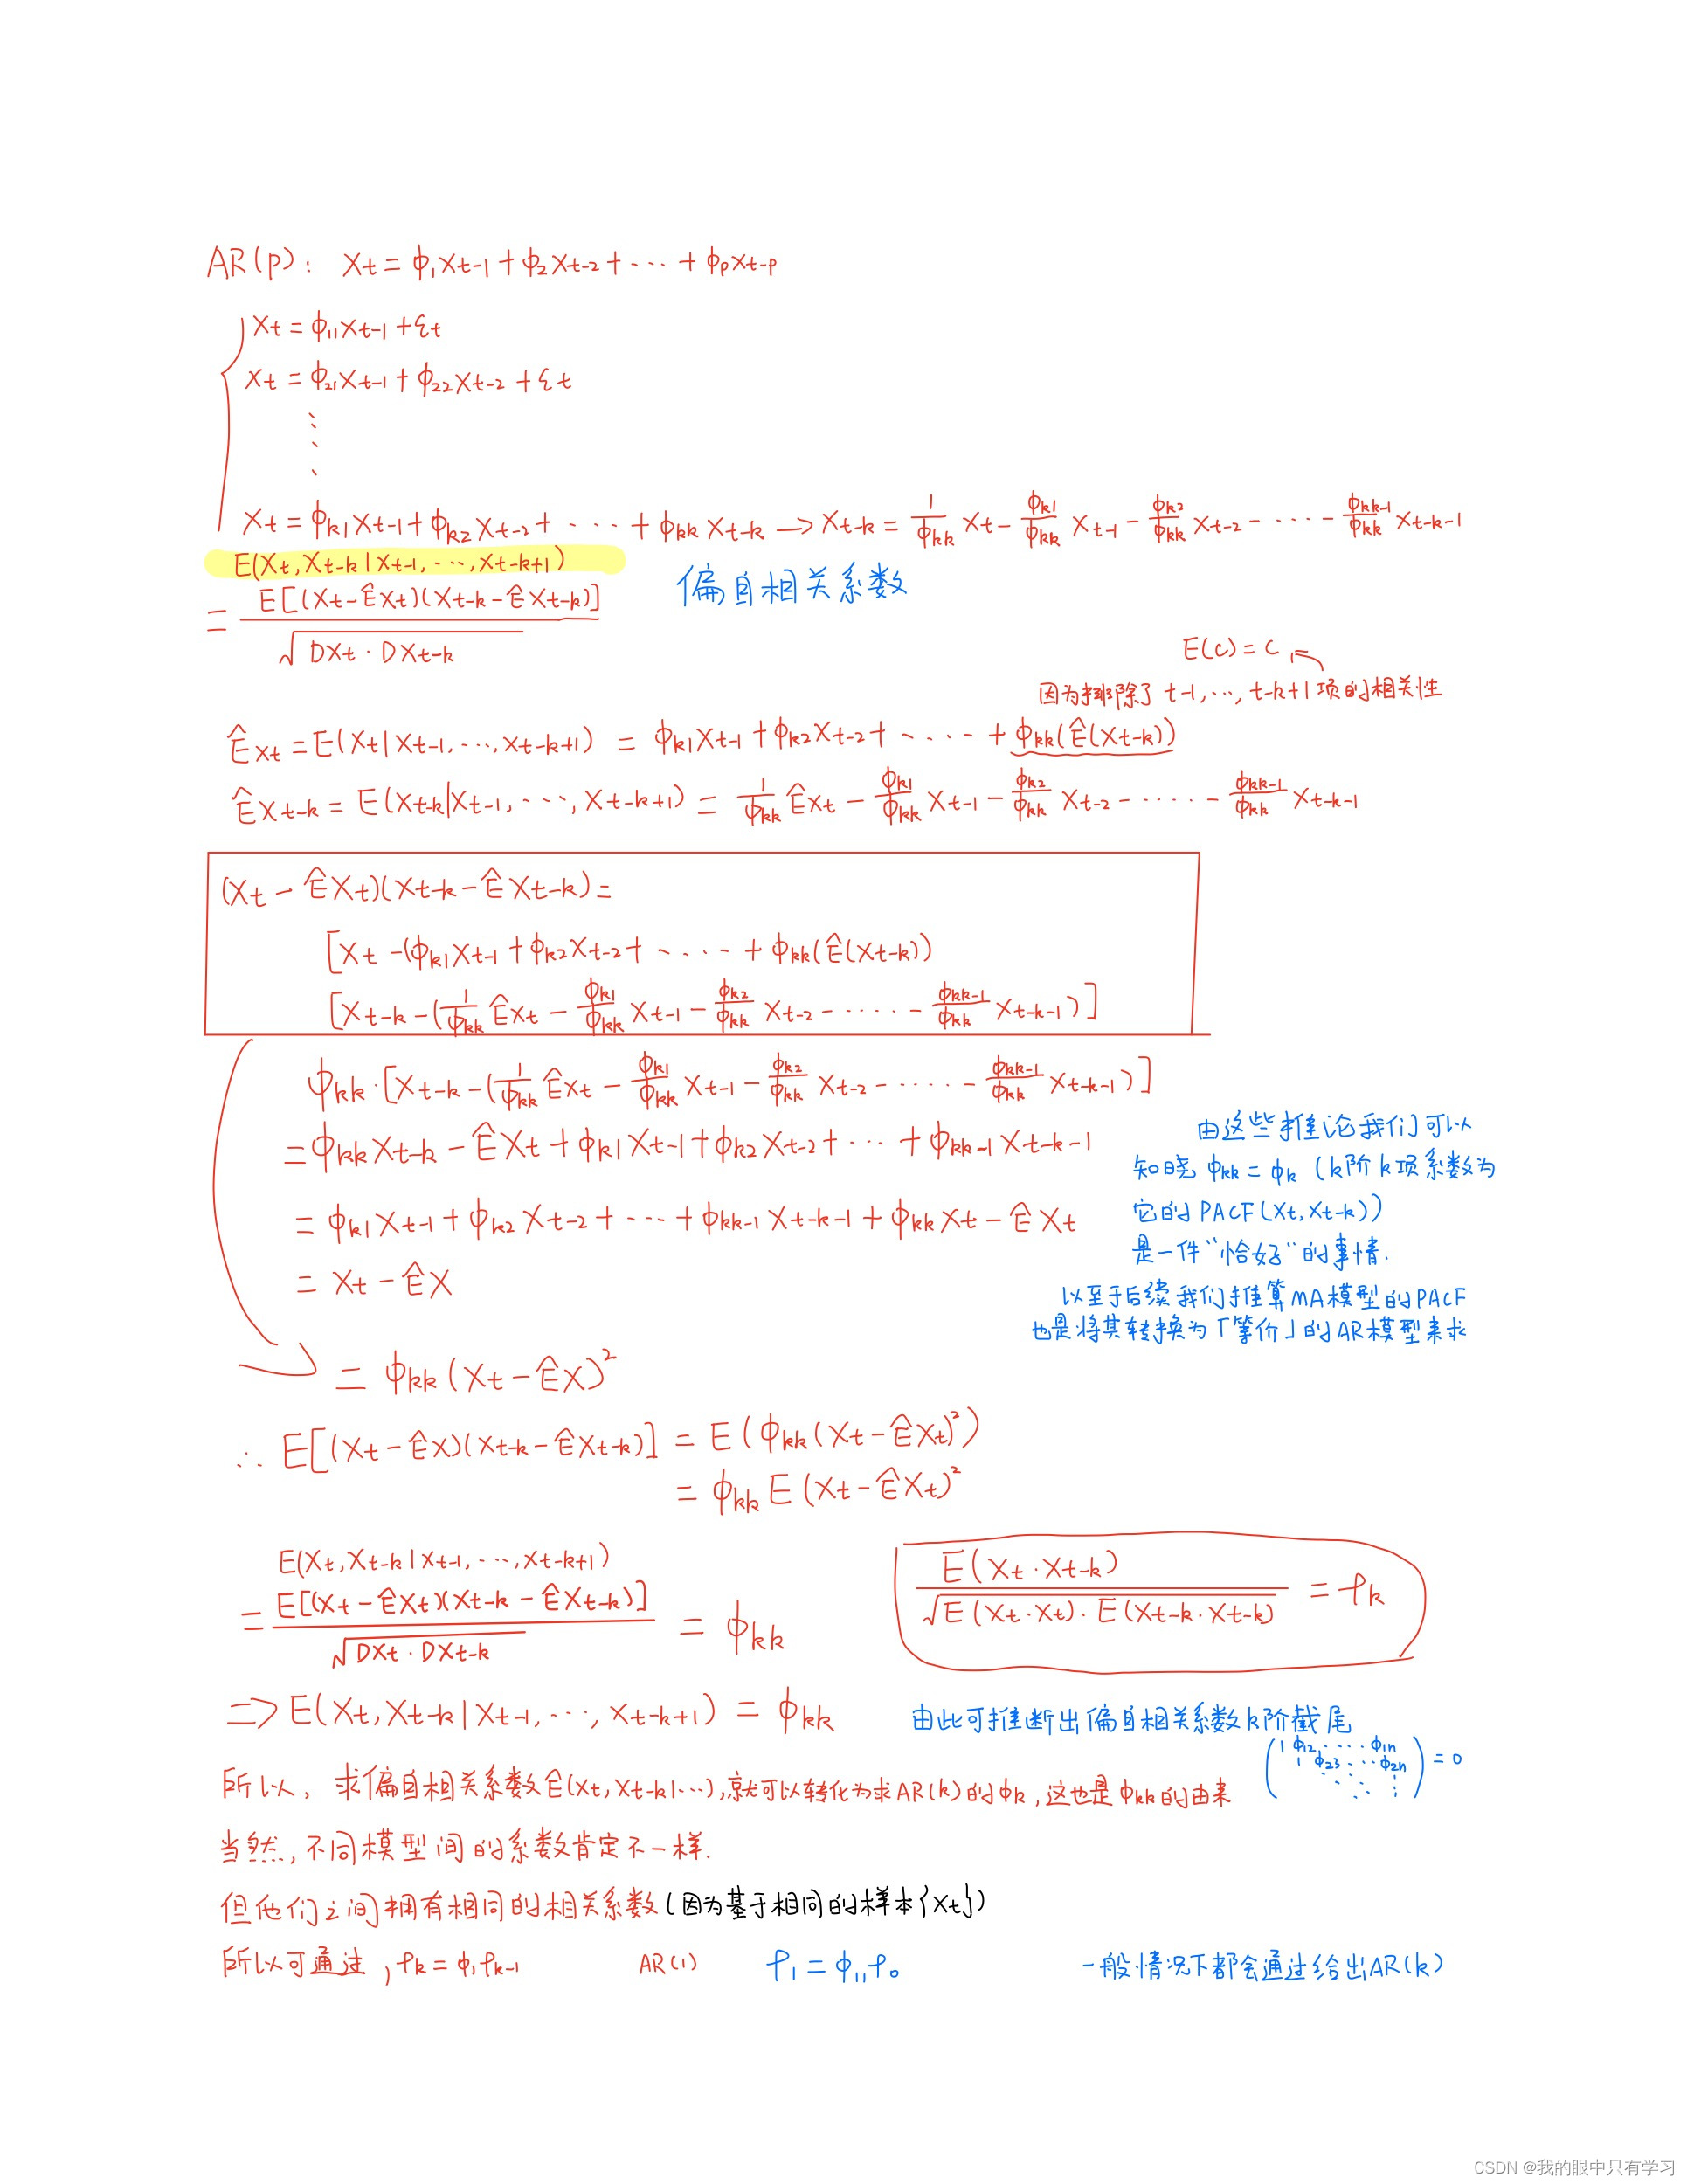 AR(p): Xt = ϕ₁Xt-1 + ϕ₂Xt-2 + ··· + ϕpXt-p
Xt = ϕ₁₁Xt-1 + εt
Xt = ϕ₂₁Xt-1 + ϕ₂₂Xt-2 + εt
⋮
Xt = ϕk1Xt-1 + ϕk2Xt-2 + ···· + ϕkkXt-k → Xt-k = 1/ϕkk Xt - ϕk1/ϕkk Xt-1 - ϕk2/ϕkk Xt-2 - ···· - ϕkk-1/ϕkk Xt-k-1
E(Xt, Xt-k | Xt-1, ···, Xt-k+1)
= E[(Xt-ÊXt)(Xt-k-ÊXt-k)] / √DXt·DXt-k
偏自相关系数
E(C) = C
因为排除了 t-1, ···, t-k+1 项的相关性
ÊXt = E(Xt | Xt-1, ···, Xt-k+1) = ϕk1Xt-1 + ϕk2Xt-2 + ····· + ϕkk(Ê(Xt-k))
ÊXt-k = E(Xt-k | Xt-1, ···, Xt-k+1) = 1/ϕkk ÊXt - ϕk1/ϕkk Xt-1 - ϕk2/ϕkk Xt-2 - ····· - ϕkk-1/ϕkk Xt-k-1
(Xt - ÊXt)(Xt-k - ÊXt-k) =
[Xt - (ϕk1Xt-1 + ϕk2Xt-2 + ····· + ϕkk(Ê(Xt-k))
[Xt-k - (1/ϕkk ÊXt - ϕk1/ϕkk Xt-1 - ϕk2/ϕkk Xt-2 - ····· - ϕkk-1/ϕkk Xt-k-1)]
ϕkk·[Xt-k - (1/ϕkk ÊXt - ϕk1/ϕkk Xt-1 - ϕk2/ϕkk Xt-2 - ····· - ϕkk-1/ϕkk Xt-k-1)]
= ϕkkXt-k - ÊXt + ϕk1Xt-1 + ϕk2Xt-2 + ··· + ϕkk-1Xt-k-1
= ϕk1Xt-1 + ϕk2Xt-2 + ··· + ϕkk-1Xt-k-1 + ϕkkXt - ÊXt
= Xt - ÊX
由这些推论我们可以
知晓 ϕkk = ϕk (k阶k项系数为
它的PACF(Xt, Xt-k))
是一件“恰好“的事情.
以至于后续我们推算MA模型的PACF
也是将其转换为「等价」的AR模型来求
= ϕkk(Xt - ÊX)²
∴ E[(Xt - ÊX)(Xt-k - ÊXt-k)] = E(ϕkk(Xt - ÊXt)²)
= ϕkk E(Xt - ÊXt)²
E(Xt, Xt-k | Xt-1, ···, Xt-k+1)
= E[(Xt - ÊXt)(Xt-k - ÊXt-k)] / √DXt·DXt-k = ϕkk
E(Xt·Xt-k) / √E(Xt·Xt)·E(Xt-k·Xt-k) = ρk
=> E(Xt, Xt-k | Xt-1, ···, Xt-k+1) = ϕkk
由此可推断出偏自相关系数k阶截尾
(1 ϕ12 ···· ϕ1n
1 ϕ23 ··· ϕ2n
⋱ ⋮) = 0
所以, 求偏自相关系数Ê(Xt, Xt-k|···), 就可以转化为求AR(k)的ϕk, 这也是ϕkk的由来
当然, 不同模型间的系数肯定不一样.
但他们之间拥有相同的相关系数(因为基于相同的样本{Xt})
所以可通过, ρk = ϕ₁ρk-1 AR(1) ρ₁ = ϕ₁₁ρ₀ 一般情况下都会通过给出AR(k)
CSDN @我的眼中只有学习